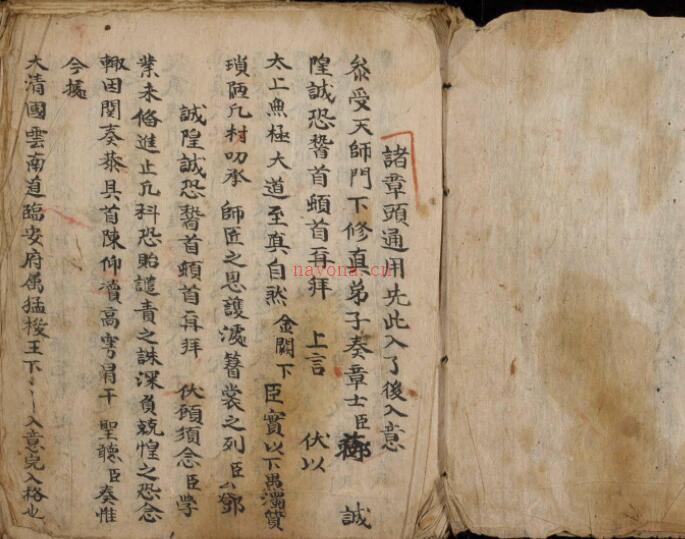 諸章頭通用先此入了後入意
叅受天師門下修真弟子奏章士臣鄧 誠
隍誠恐稽首頓首再拜 上言 伏以
太上無極大道至真自然 金闕下 臣實以下愚濁質
瑣陋凡材叨承 師匠之恩護濫簪裳之列 臣公鄧
誠隍誠恐稽首頓首再拜 伏願須念臣學
業未俻進止凡科恐貽譴責之誅深負兢惶之恐念
輙因関奏恭具首陳仰瀆高穹涓干 聖聽臣奏惟
今據
大清國雲南道臨安府属猛梭王下入意完入格也
nayona.cn